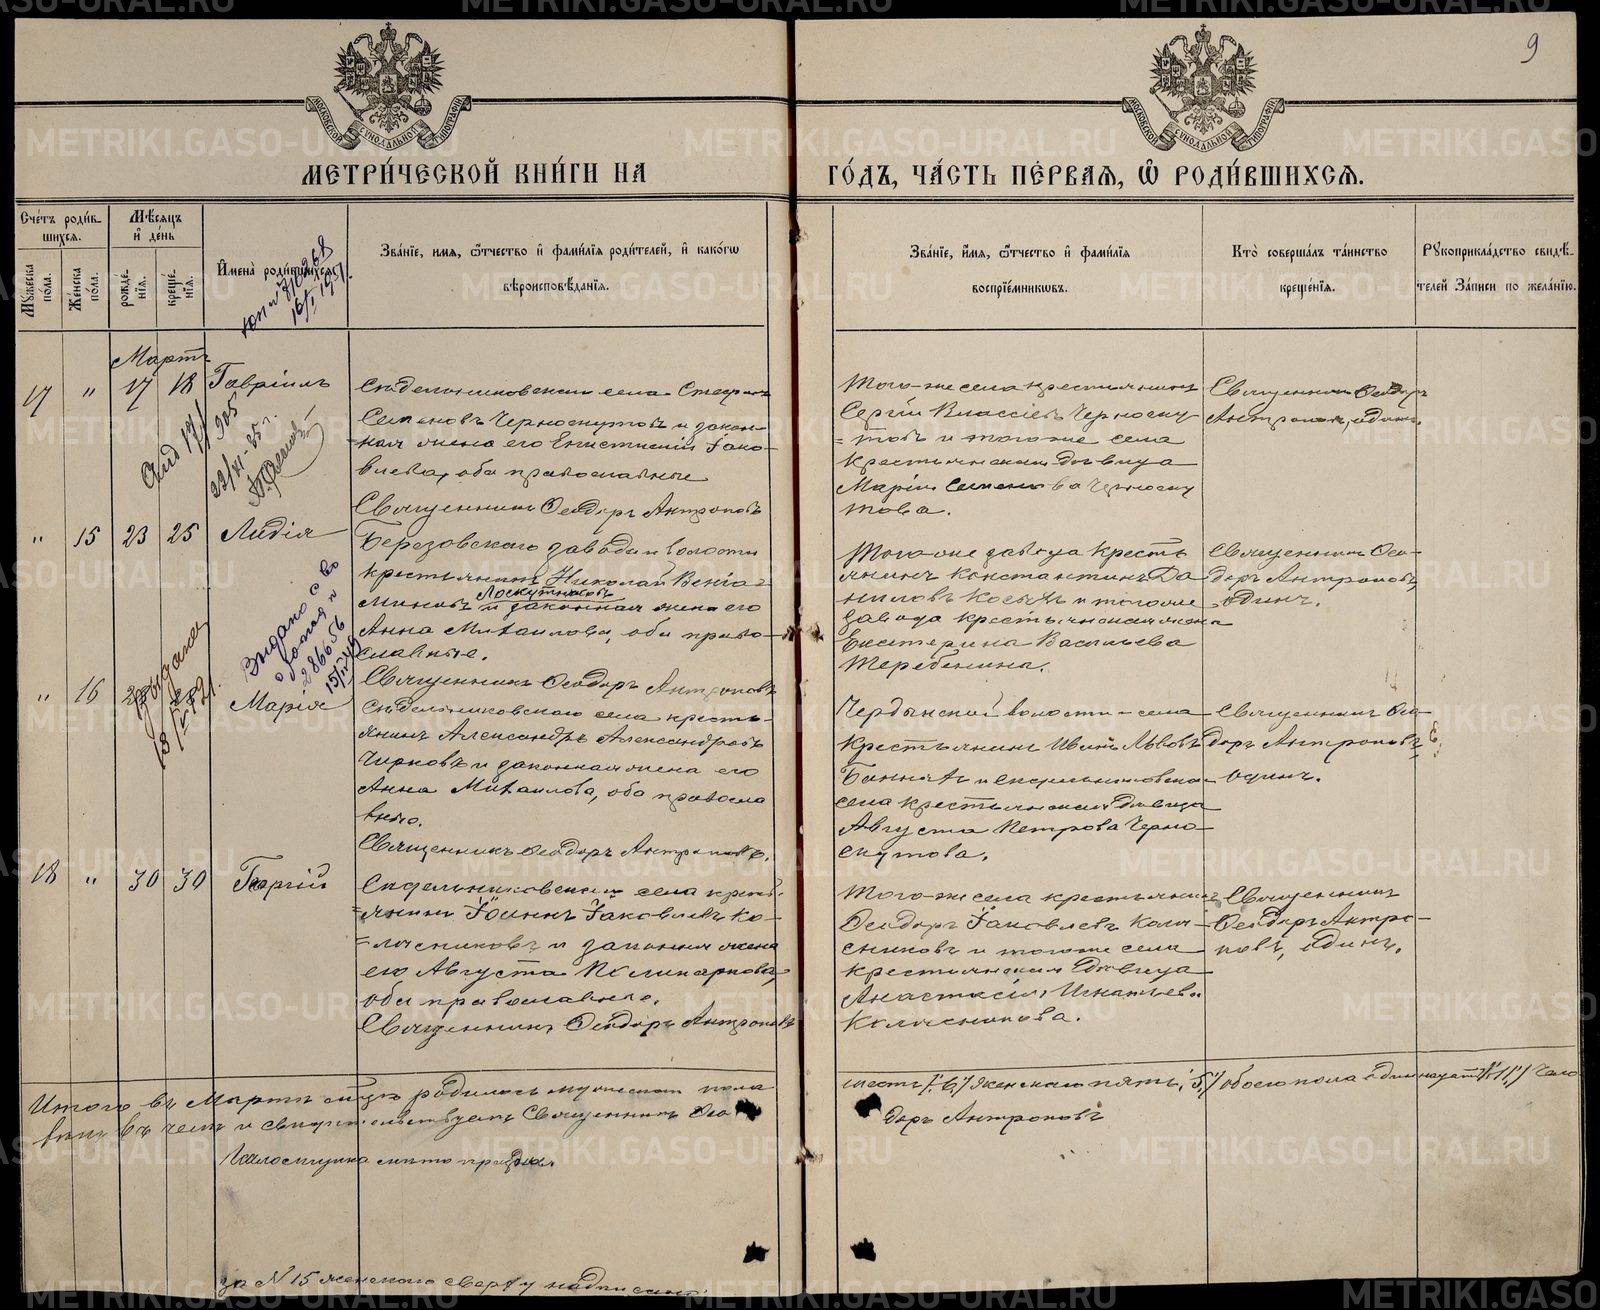 9
МОСКОВСКОЙ СѴНОДАЛЬНОЙ ТИПОГРАФІИ
МОСКОВСКОЙ СѴНОДАЛЬНОЙ ТИПОГРАФІИ
МЕТРИ́ЧЕСКОЙ КНИ́ГИ НА ГО́ДЪ, ЧА́СТЬ ПЕ́РВАЯ, Ѡ РОДИ́ВШИХСЯ.
Сче́тъ роди́в-
шихся.
Му́жеска по́ла.
Же́нска по́ла.
Мѣ́сяцъ
и де́нь
рожде́нія.
креще́нія.
Имена̀ роди́вшихся.
копия 16/I 1951.
Зва́ніе, имя, ѻ҆́тчество и фами́лія роди́телей, и како́гѡ
вѣроисповѣ́данія.
Зва́ніе, и́мя, ѻ҆́тчество и фами́лія
воспріе́мникѡвъ.
Кто̀ соверша́лъ та́инство
креще́нія.
Рукоприкла́дство свидѣ́-
телей за́писи по жела́нію.
Мартъ
17 " 17 18 Гавріилъ
Сидельниковскаго села Стефанъ
Семеновъ Черноскутовъ и закон-
ная жена его Евистимія Іако-
влева, оба православные
Священникъ Ѳеодоръ Антроповъ
Того-же села крестьянинъ
Сергій Власіевъ Черноску
товъ и того же села
крестьянская дѣвица
Марія Семенова Черноску
това.
Священникъ Ѳеодоръ
Антроповъ, одинъ.
905
22/XI-35 г.
" 15 23 25 Лидія
Березовскаго завода и волости
крестьянинъ Николай Веніа-
миновъ Лоскутниковъ и законная жена его
Анна Михаилова, оба право-
славные.
Священникъ Ѳеодоръ Антроповъ
Того-же завода кресть
янинъ Константинъ Да
ниловъ Косыхъ и того же
завода крестьянская жена
Екатерина Васильева
Теребенина.
Священникъ Ѳео-
доръ Антроповъ,
одинъ.
Выдано с во
286656
" 16 Марія
Сидельниковскаго села кресть-
янинъ Александръ Александровъ
Чирковъ и законная жена его
Анна Михаилова, оба правосла
вные.
Священникъ Ѳеодоръ Антроповъ.
Чердынской волости - села
крестьянинъ Иванъ Львовъ
и Сидельниковскаго
села крестьянская дѣвица
Августа Петрова Черно-
скутова.
Священникъ Ѳео
доръ Антроповъ
одинъ.
18 " 30 30 Георгій
Сидельниковскаго села кресть
янинъ Іоаннъ Іаковлевъ Ко-
лясниковъ и законная жена
его Августа Поликарпова,
оба православные.
Священникъ Ѳеодоръ Антроповъ
Того-же села крестьянинъ
Ѳеодоръ Іаковлевъ Коля-
сниковъ и того же села
крестьянская дѣвица
Анастасія Игнатьева
Колясникова.
Священникъ
Ѳеодоръ Антро-
повъ, одинъ.
Итого въ Мартѣ м-цѣ родилось мужескаго пола шесть /:6:/ женскаго пять /:5:/ обоего пола одиннадцать /:11:/ чело
вѣкъ въ чемъ и свидѣтельствуетъ Священникъ Ѳео доръ Антроповъ
за № 15 женскаго сверху надписано: